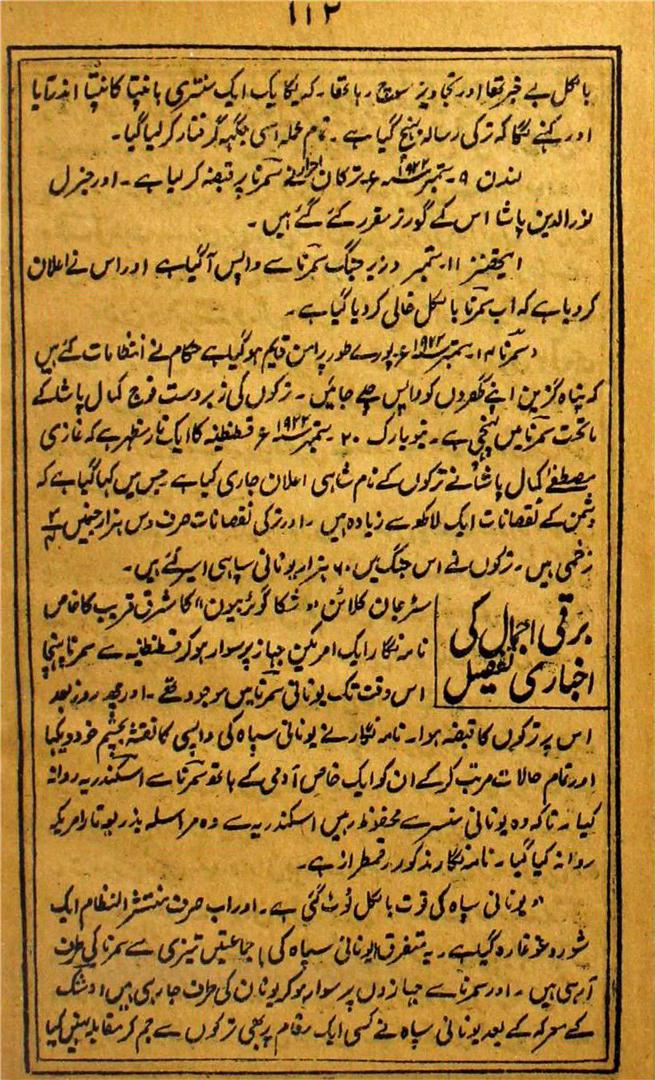 ۱۱۲
بالکل بے خبر تھا اور تجاویز سوچ رہا تھا۔ کہ یکایک ایک سنتری ہانپتا کانپتا اندر آیا
اور کہنے لگا کہ ترکی رسالہ پہنچ گیا ہے۔ تمام عملہ اسی جگہ گرفتار کر لیا گیا۔
لندن ۹۔ ستمبر ۱۹۲۲ء۔ ترکان احرار نے سمرنا پر قبضہ کر لیا ہے۔ اور جنرل
نورالدین پاشا اس کے گورنر مقرر کئے گئے ہیں۔
ایتھنز ۱۱۔ ستمبر وزیر جنگ سمرنا سے واپس آگیا ہے اور اس نے اعلان
کر دیا ہے کہ اب سمرنا بالکل خالی کر دیا گیا ہے۔
سمرنا ۱۴ ستمبر ۱۹۲۲ء پورے طور پر امن قایم ہو گیا ہے حکام نے انتظامات کئے ہیں
کہ پناہ گزین اپنے گھروں کو واپس چلے جائیں۔ ترکوں کی زبردست فوج کمال پاشا کے
ماتحت سمرنا میں پہنچی ہے۔ نیویارک ۲۰۔ ستمبر ۱۹۲۲ء قسطنطنیہ کا ایک تار مظہر ہے کہ غازی
مصطفےٰ کمال پاشا نے ترکوں کے نام شاہی اعلان جاری کیا ہے جس میں کہا گیا ہے کہ
دشمن کے نقصانات ایک لاکھ سے زیادہ ہیں۔ اور ترکی نقصانات صرف دس ہزار جنمیں ۳/۴
زخمی ہیں۔ ترکوں نے اس جنگ میں ۶۰ ہزار یونانی سپاہی اسیر کئے ہیں۔
برقی اجمال کی
اخباری تفصیل
سٹر جان کلائن "شکاگو ٹربیون" کا مشرق قریب کا خاص
نامہ نگار ایک امریکن جہاز پر سوار ہو کر قسطنطنیہ سے سمرنا پہنچا
اس وقت تک یونانی سمرنا میں موجود تھے۔ اور چند روز بعد
اس پر ترکوں کا قبضہ ہوا۔ نامہ نگار نے یونانی سپاہ کی واپسی کا نقشہ بچشم خود دیکھا
اور تمام حالات مرتب کر کے ان کو ایک خاص آدمی کے ہاتھ سمرنا سے اسکندریہ روانہ
کیا۔ تاکہ وہ یونانی سنسر سے محفوظ رہیں اسکندریہ سے وہ مراسلہ بذریعہ تار امریکہ
روانہ کیا گیا۔ نامہ نگار مذکور رقمطراز ہے۔
"یونانی سپاہ کی قوت بالکل ٹوٹ گئی ہے۔ اور اب صرف منتشر النظام ایک
شور و غوغا رہ گیا ہے۔ یہ متفرق (یونانی سپاہ کی) جماعتیں تیزی سے سمرنا کی طرف
آرہی ہیں۔ اور سمرنا سے جہازوں پر سوار ہو کر یونان کی طرف جا رہی ہیں اوشک
کے معرکہ کے بعد یونانی سپاہ نے کسی ایک مقام پر بھی ترکوں سے جم کر مقابلہ نہیں کیا